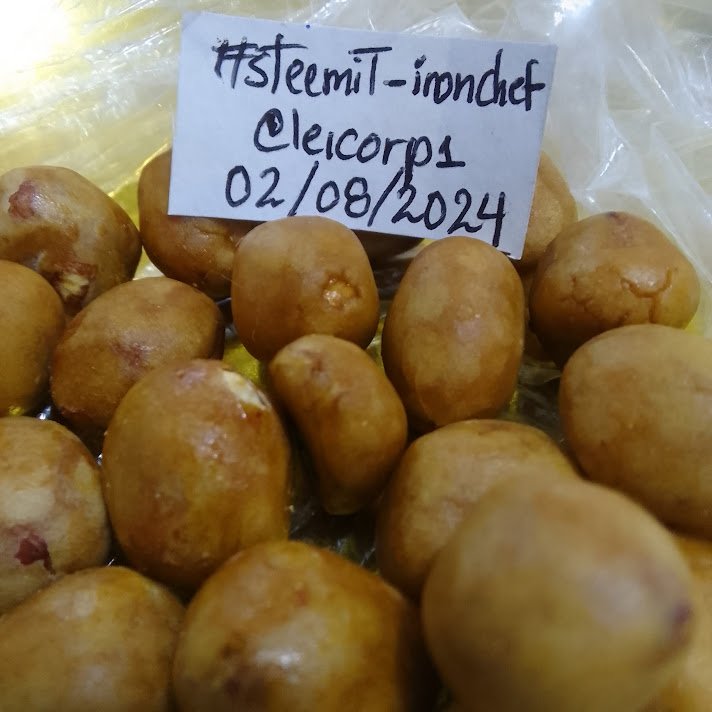 #steemiT-ironchef
@leicorp1
02/08/2024